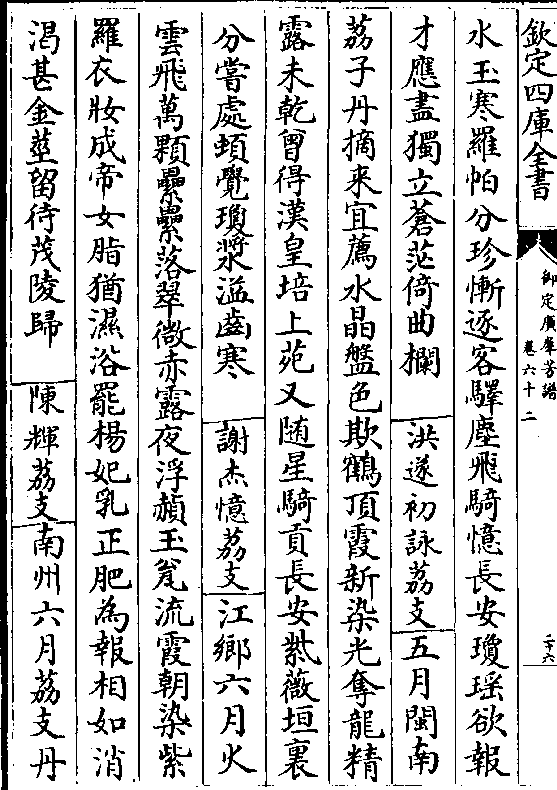 欽定四庫全書
御定廣羣芳譜
卷六十二
二十六
水玉寒羅帕分珍慚逐客驛塵飛騎憶長安瓊瑶欲報
才應盡獨立蒼茫倚曲欄　洪遂初詠荔支　五月閩南
荔子丹摘來宜薦水晶盤色欺鶴頂霞新染光奪龍精
露未乾曾得漢皇培上苑又随星騎貢長安紫薇垣裏
分嘗處頓覺瓊漿溢齒寒　謝杰憶荔支　江鄉六月火
雲飛萬顆纍纍落翠微赤露夜浮赬玉瓮流霞朝染紫
羅衣妝成帝女脂猶濕浴罷楊妃乳正肥為報相如消
渴甚金莖留待茂陵歸　陳輝荔支　南州六月荔支丹